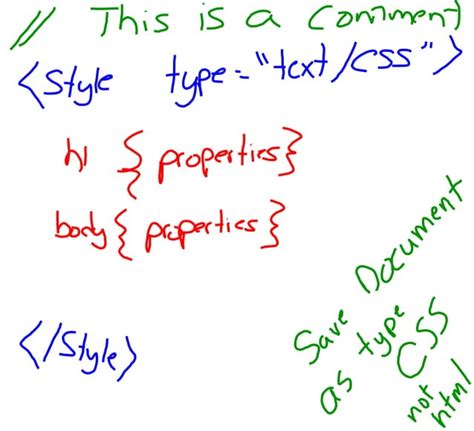 // This is a Comment
<Style type="text/css">
h1 { properties}
body{ properties}
</Style>
Save Document
as type
CSS
not
html